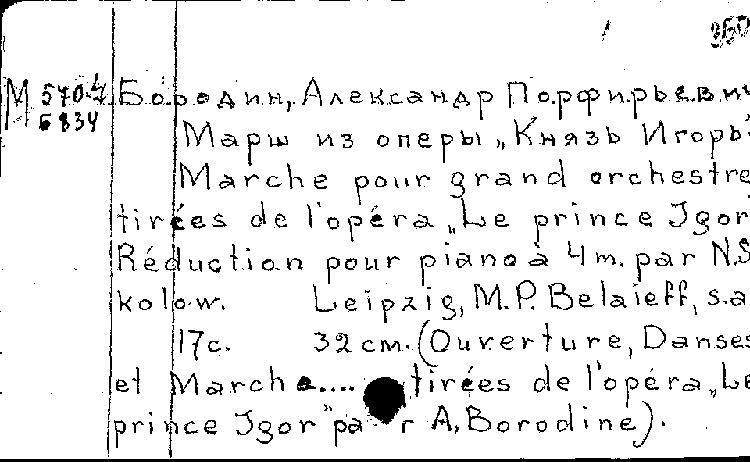 350
М 570.4 Бородин, Александр Порфирьевич
Б 834 Марш из оперы „Князь Игорь
Marche pour grand orchestre
tirées de l'opéra „Le prince Igor
Réduction pour piano à 4 m. par N.S
kolow. Leipzig, M.P. Belaieff, s.a
17c. 32 см. (Ouverture, Danses
et Marche.... tirées de l'opéra „Le
prince Igor" par A. Borodine).